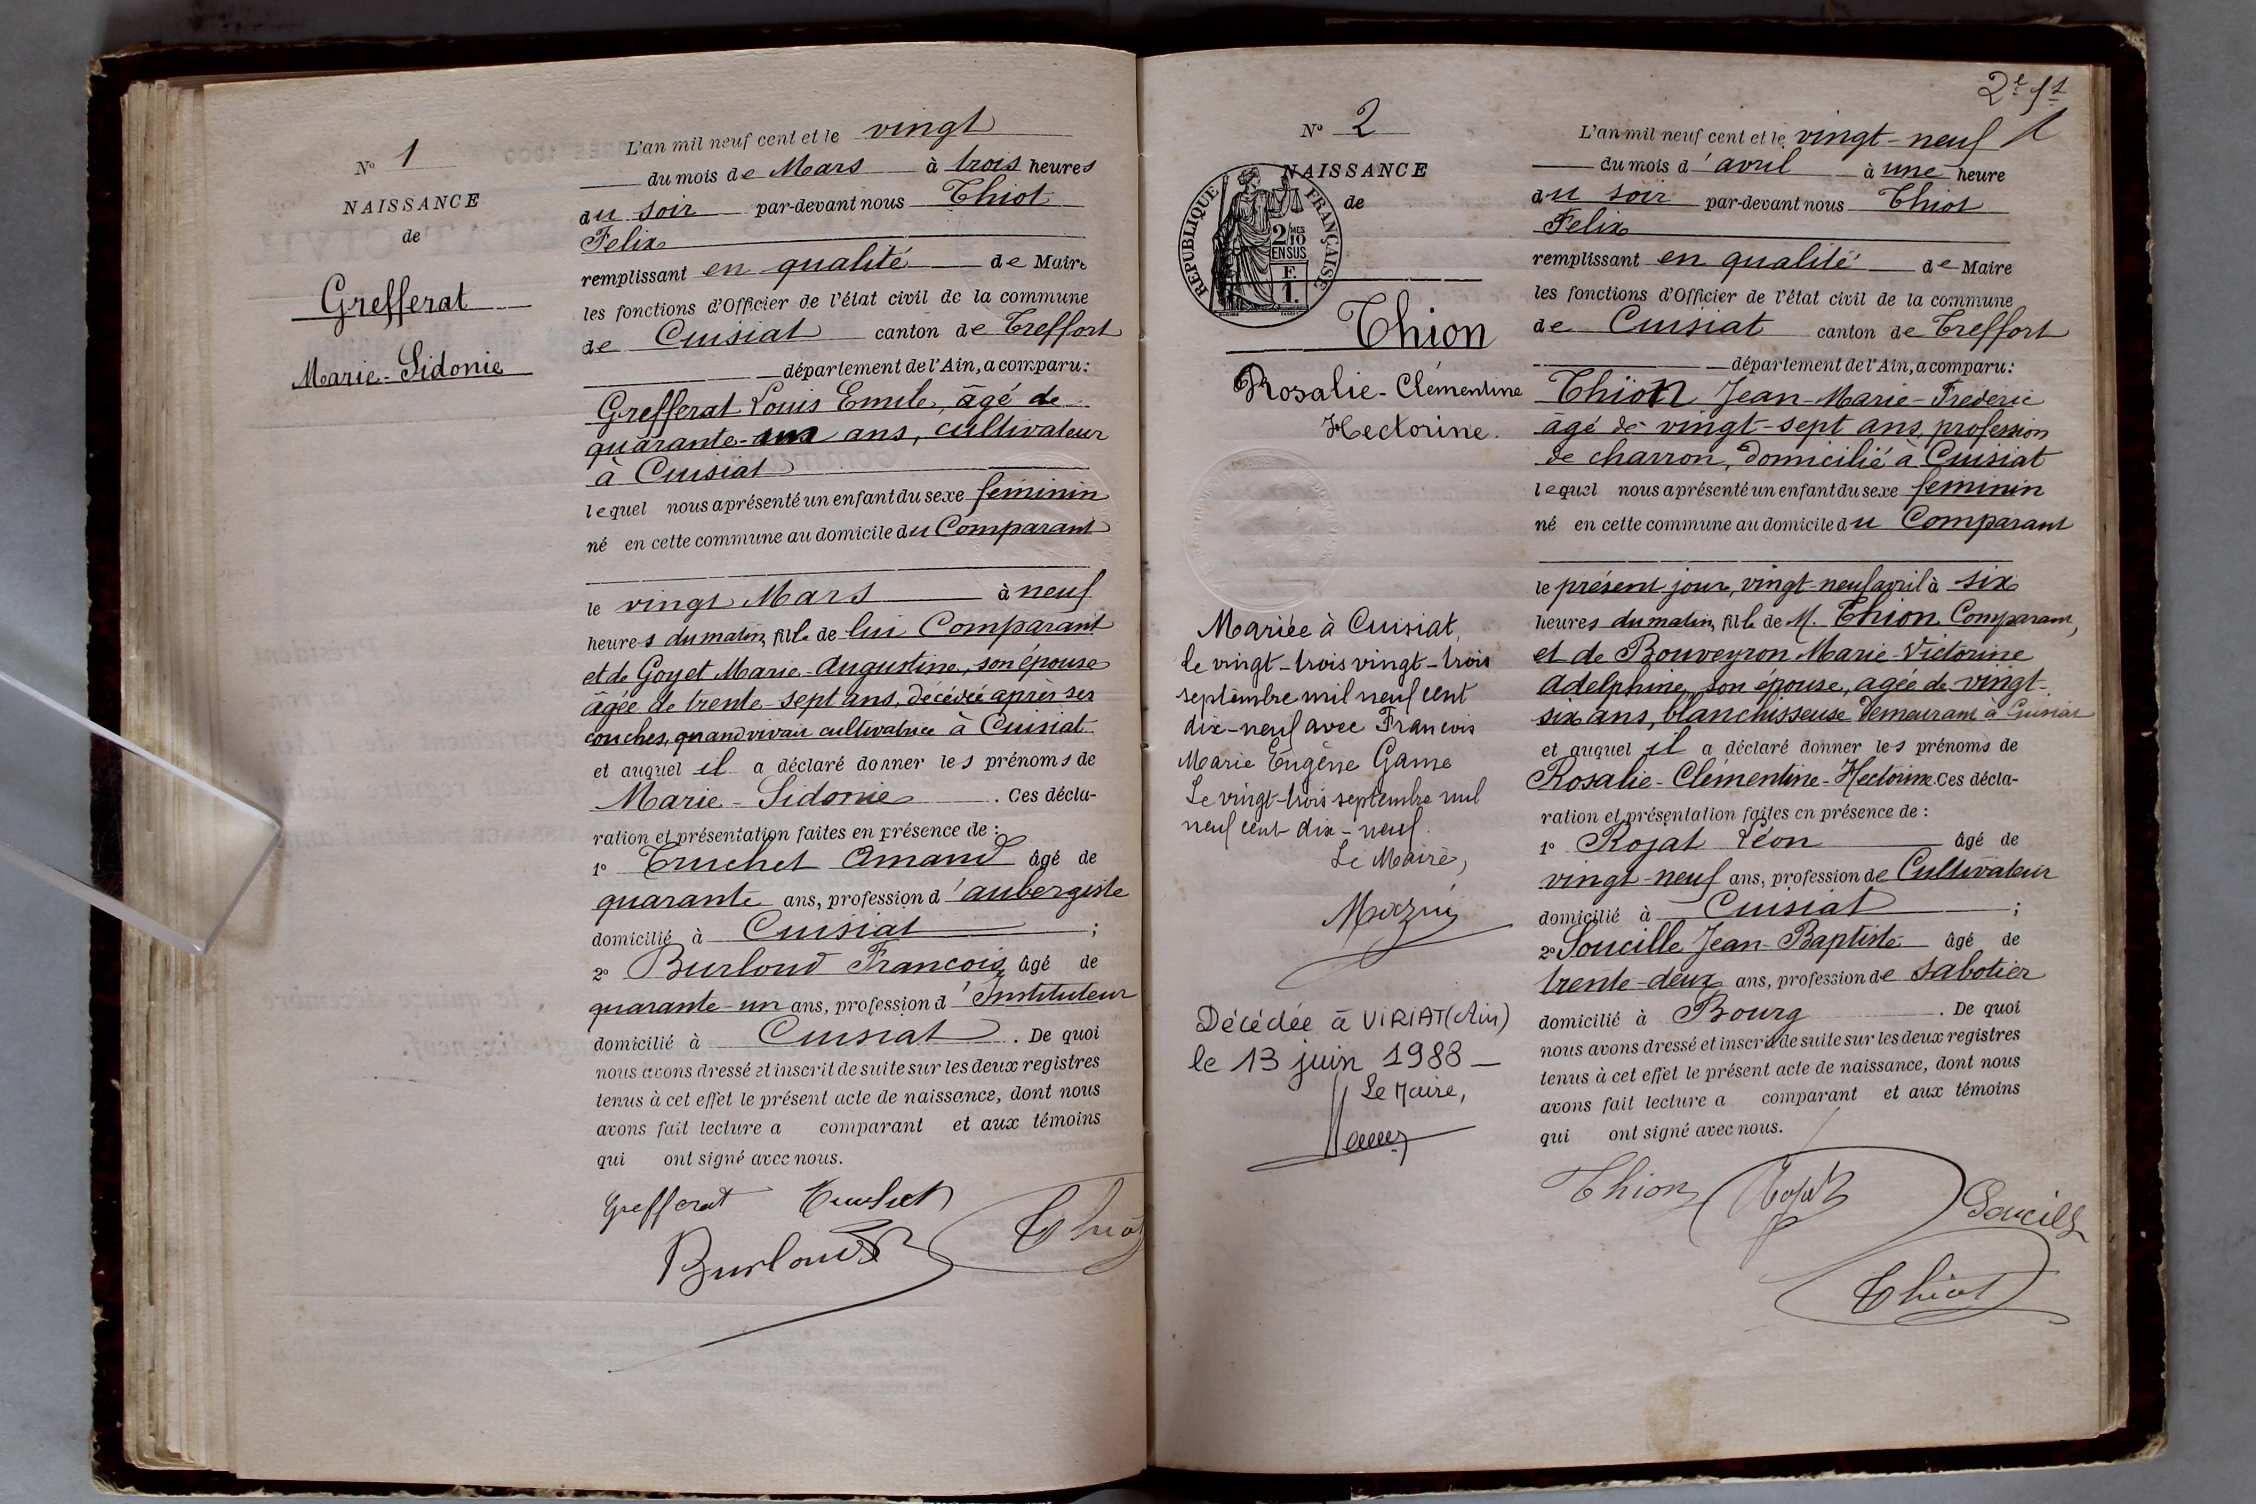 N° 1
NAISSANCE
de
Grefferat
Marie-Sidonie
L'an mil neuf cent et le vingt
du mois de Mars à trois heures
du soir par-devant nous Thiot
Felix
remplissant en qualité de Maire
les fonctions d'Officier de l'état civil de la commune
de Cuisiat canton de Treffort
département de l'Ain, a comparu:
Grefferat Louis Emile, âgé de
quarante- ans, cultivateur
à Cuisiat
lequel nous a présenté un enfant du sexe féminin
né en cette commune au domicile du Comparant
le vingt Mars à neuf
heures du matin, fille de lui Comparant
et de Goyet Marie-Augustine, son épouse
âgée de trente-sept ans, décédée après ses
couches, quand vivait cultivatrice à Cuisiat
et auquel il a déclaré donner les prénoms de
Marie-Sidonie. Ces décla-
ration et présentation faites en présence de:
1° Truchet Amand âgé de
quarante ans, profession d'aubergiste
domicilié à Cuisiat;
2° Burloud François, âgé de
quarante-un ans, profession d'Instituteur
domicilié à Cuisiat. De quoi
nous avons dressé et inscrit de suite sur les deux registres
tenus à cet effet le présent acte de naissance, dont nous
avons fait lecture a comparant et aux témoins
qui ont signé avec nous.
Grefferat Truchet
Burloud Thiot
2e ft
1
N° 2
NAISSANCE
de
REPUBLIQUE FRANÇAISE
2/10 MES
EN SUS
F.
1.
Thion
Rosalie-Clémentine
Hectorine.
Mariée à Cuisiat,
le vingt-trois vingt-trois
septembre mil neuf cent
dix-neuf avec François
Marie Eugène Game
Le vingt-trois septembre mil
neuf cent dix-neuf.
Le Maire,
Décédée à VIRIAT (Ain)
le 13 juin 1988
Le Maire,
L'an mil neuf cent et le vingt-neuf
du mois d'avril à une heure
du soir par-devant nous Thiot
Felix
remplissant en qualité de Maire
les fonctions d'Officier de l'état civil de la commune
de Cuisiat canton de Treffort
département de l'Ain, a comparu:
Thion Jean-Marie-Frédéric
âgé de vingt-sept ans, profession
de charron, domicilié à Cuisiat
lequel nous a présenté un enfant du sexe féminin
né en cette commune au domicile du Comparant
le présent jour, vingt-neuf avril à six
heures du matin, fille de M. Thion, Comparant,
et de Bouveyron Marie-Victorine
Adelphine, son épouse, âgée de vingt-
six ans, blanchisseuse demeurant à Cuisiat
et auquel il a déclaré donner les prénoms de
Rosalie-Clémentine-Hectorine. Ces décla-
ration et présentation faites en présence de:
1° Rojat Léon âgé de
vingt-neuf ans, profession de Cultivateur
domicilié à Cuisiat;
2° Soucille Jean-Baptiste âgé de
trente-deux ans, profession de sabotier
domicilié à Bourg. De quoi
nous avons dressé et inscrit de suite sur les deux registres
tenus à cet effet le présent acte de naissance, dont nous
avons fait lecture a comparant et aux témoins
qui ont signé avec nous.
Thion Rojat Soucille
Thiot